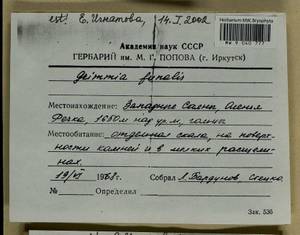 est! Е. Игнатова, 14.I.2002
Herbarium MW, Bryophyta
MW 9 040 777
Академия наук СССР
ГЕРБАРИЙ им. М. Г. ПОПОВА (г. Иркутск)
Grimmia funalis
Местонахождение: Западные Саяны,
1650 м над ур. м,
Местообитание: отдельная скала, на поверх-
ности камней и в мелких расщели-
нах.
Собрал Л. Бардунов,
№ Определил
Зак. 536